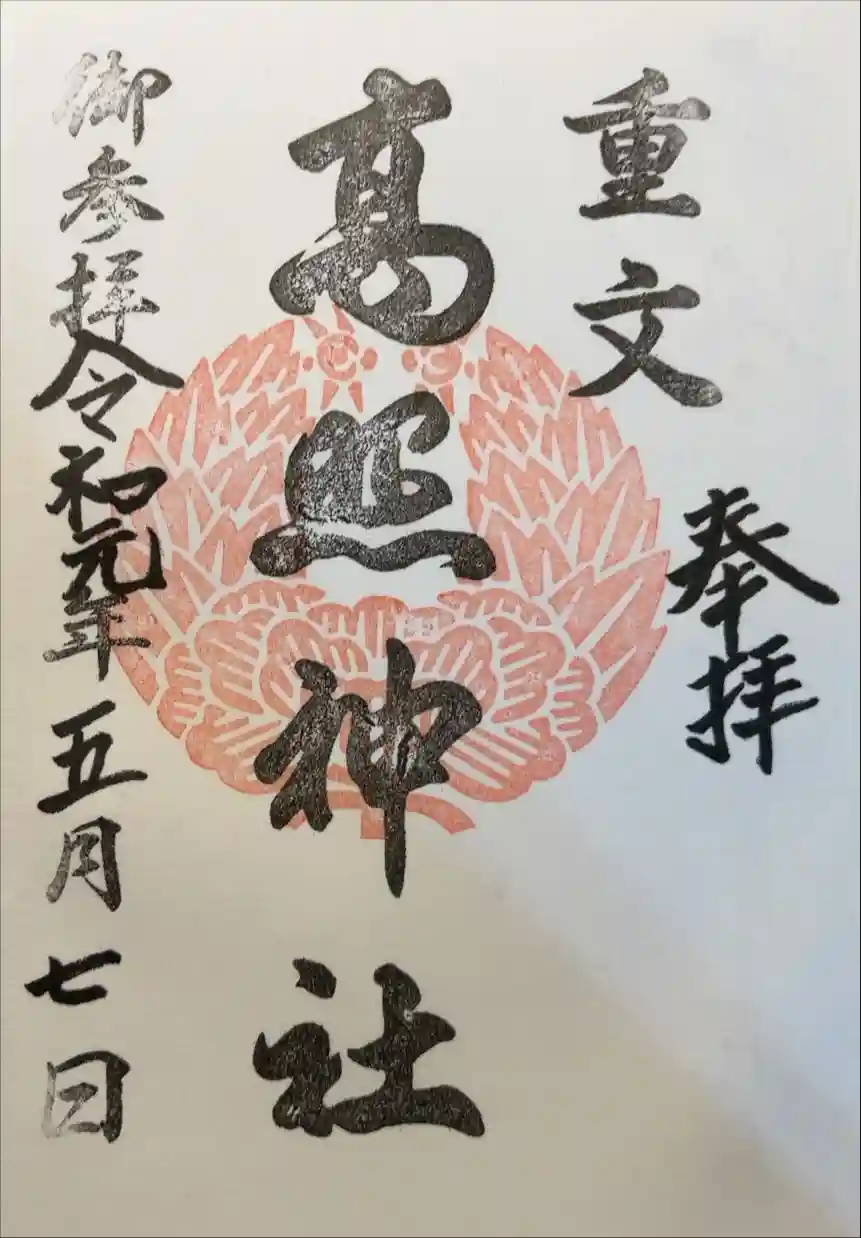 重文
奉拝
高照神社
御参拝令和元年五月七日